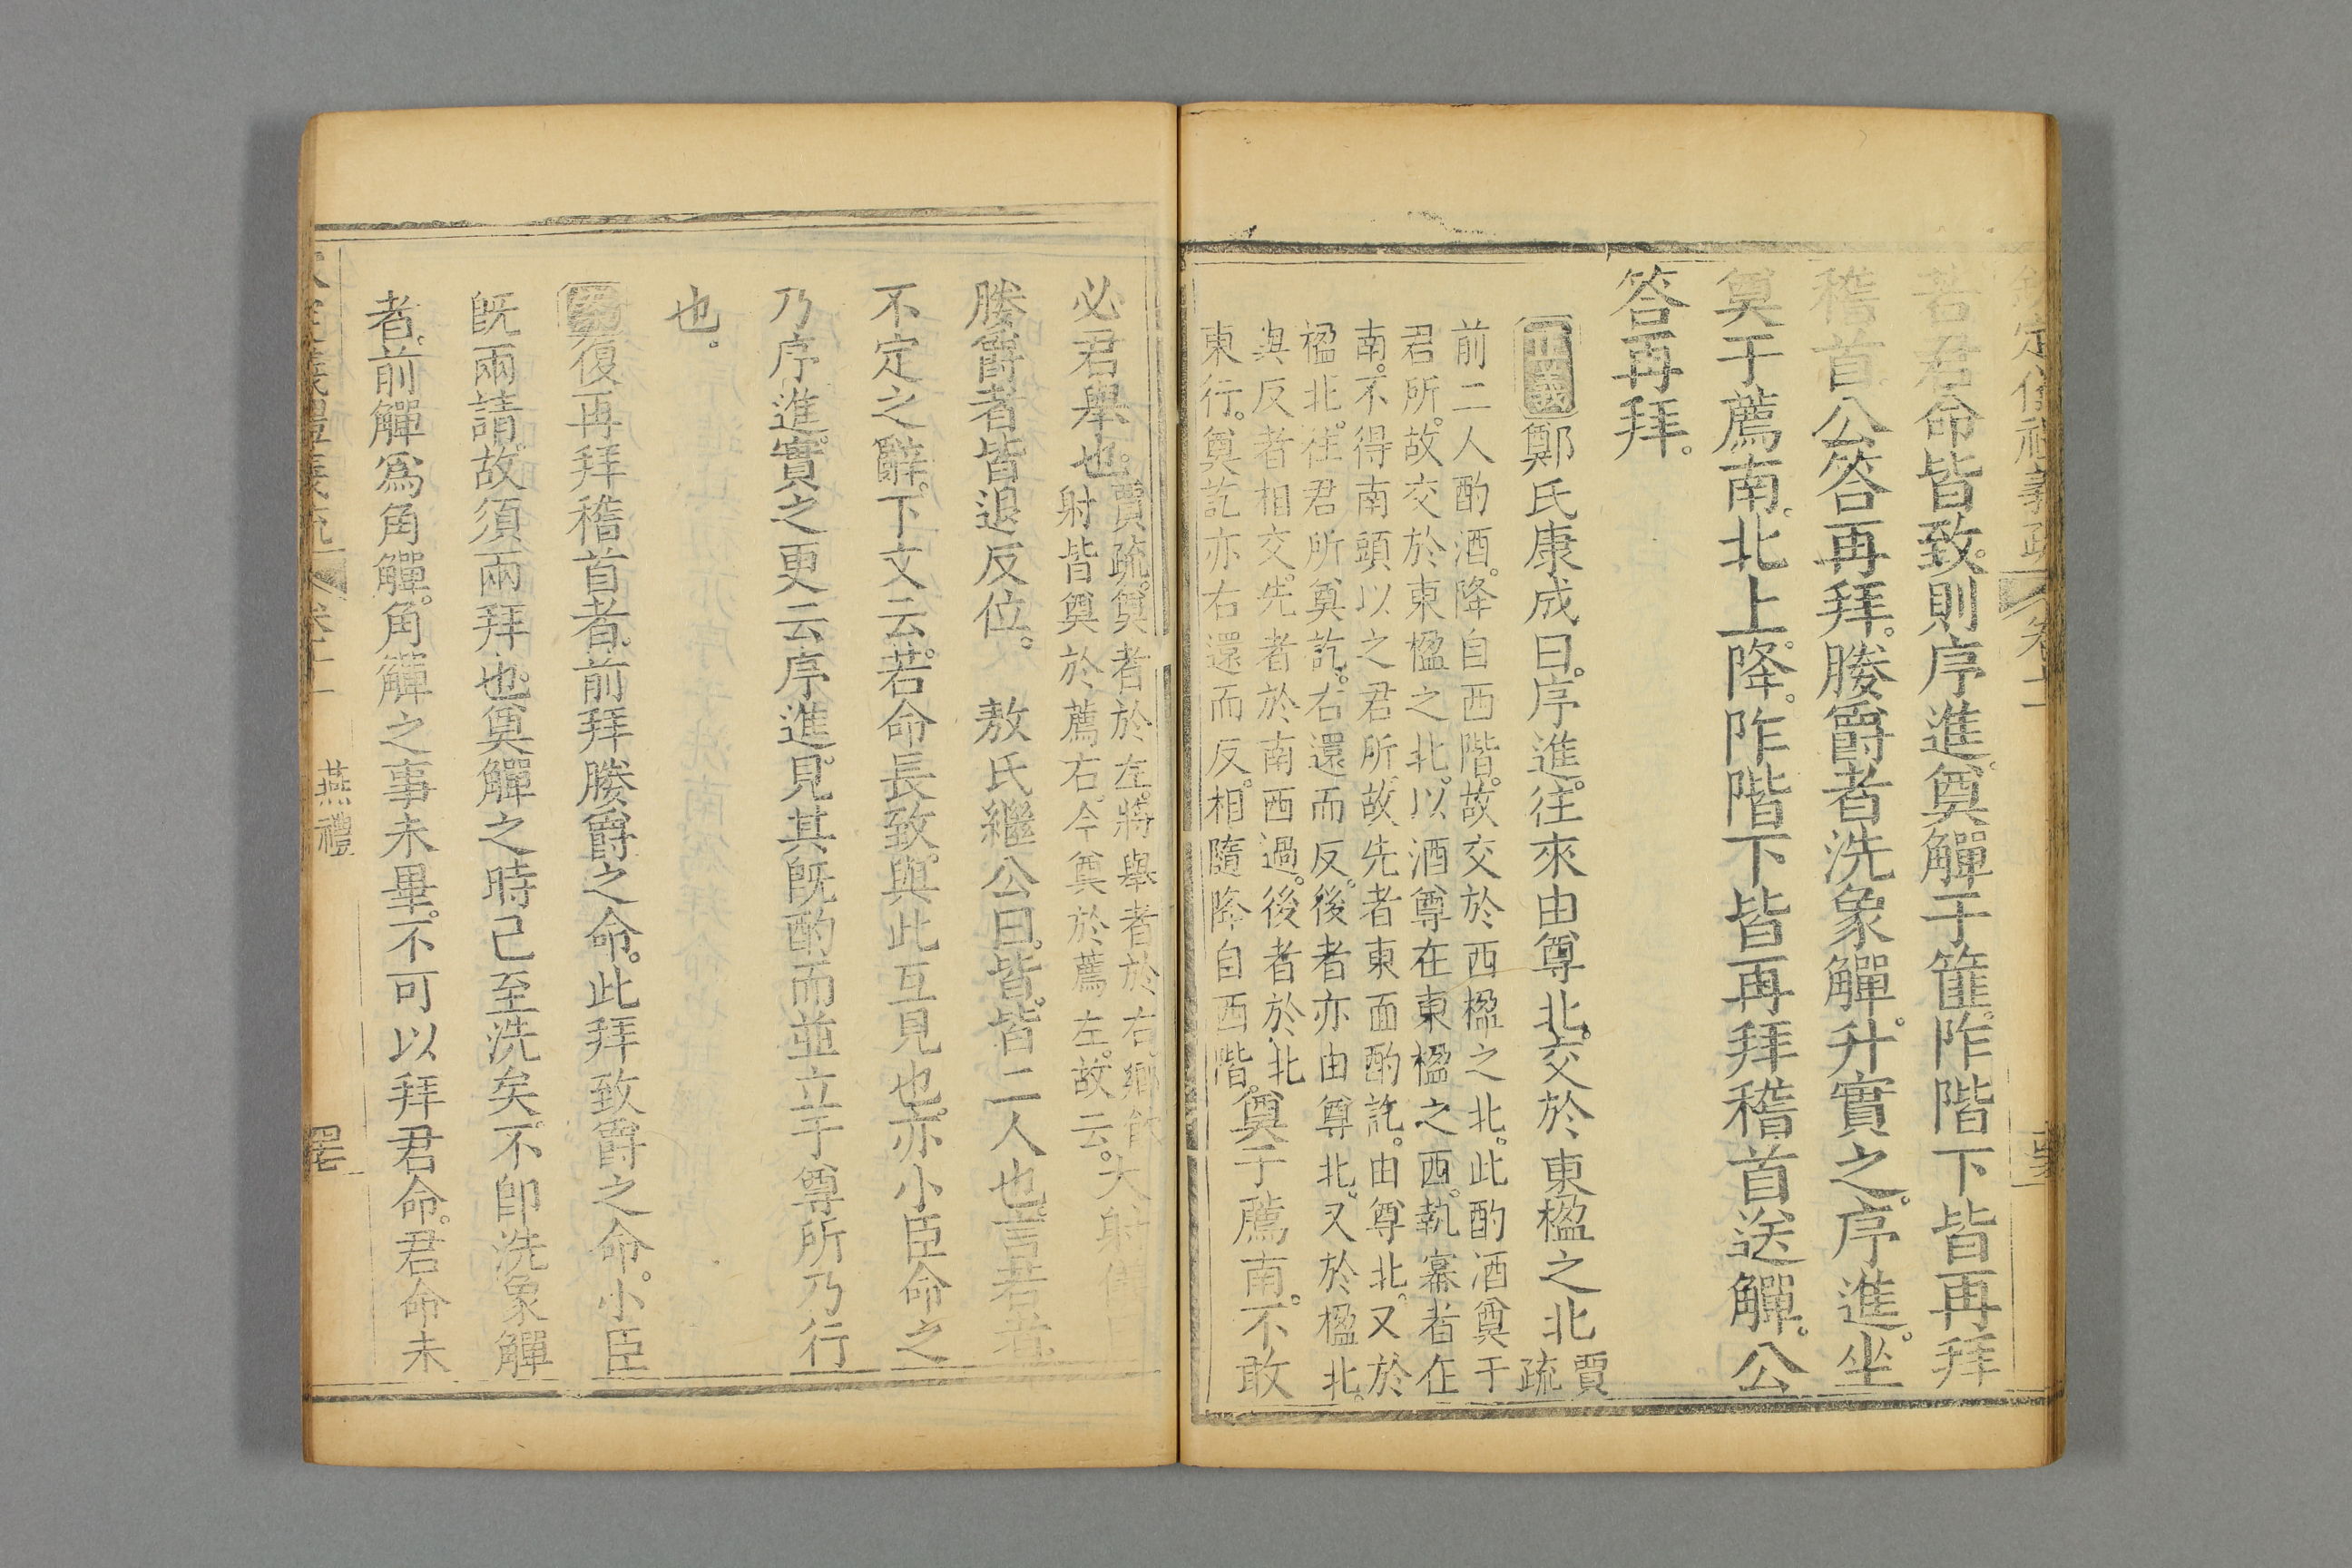 欽定儀禮義疏 卷十一
若君命皆致。則序進。奠觶于篚。阼階下皆再拜
稽首。公答再拜。媵爵者洗象觶。升實之。序進。坐
奠于薦南。北上。降。阼階下皆再拜稽首送觶。公
答再拜。
正義鄭氏康成曰。序進。往來由尊北。交於東楹之北
賈
疏
前二人酌酒。降自西階。故交於西楹之北。此酌酒奠于
君所。故交於東楹之北。以酒尊在東楹之西。執冪者在
南。不得南頭以之君所。故先者東面酌訖。由尊北。又於
楹北。往君所奠訖。右還而反。後者亦由尊北。又於楹北。
與反者相交。先者於南西過。後者於北
東行。奠訖亦右還而反。相隨降自西階。奠于薦南。不敢
必君舉也。賈疏。奠者於左。將舉者於右。鄉飲大射
射皆奠於薦右。今奠於薦左。故云。
媵爵者皆退反位。 敖氏繼公曰。皆。皆二人也。言若者。
不定之辭。下文云。若命長致。與此互見也。亦小臣命之
乃序進。實之更云序進。見其既酌而並立于尊所乃行
也。
復再拜稽首者。前拜媵爵之命。此拜致爵之命。小臣
既兩請。故須兩拜也。奠觶之時已至洗矣。不卽洗象觶
者。前觶爲角觶。角觶之事未畢。不可以拜君命。君命未
卷十一 燕禮